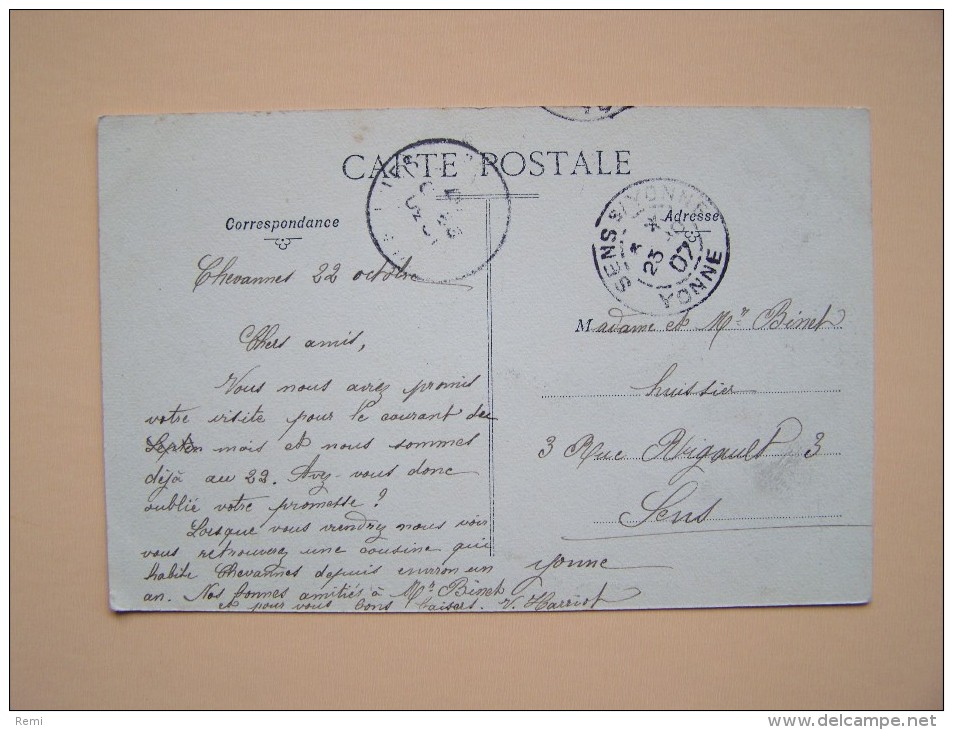 CARTE POSTALE
Correspondance
Chevannes 22 octobre
Chers amis,
Vous nous aviez promis
votre visite pour le courant du
Septem mois et nous sommes
déjà au 22. Avez-vous donc
oublié votre promesse?
Lorsque vous viendrez nous voir
vous retrouverez une cousine qui
habite Chevannes depuis environ un
an. Nos bonnes amitiés à Mr Binet
et pour vous bons baisers. V. Harriot
Adresse
SENS S/YONNE
23
07
YONNE
Madame et Mr Binet
huissier
3 Rue Rigault 3
Sens
Yonne
Remi
www.delcampe.net